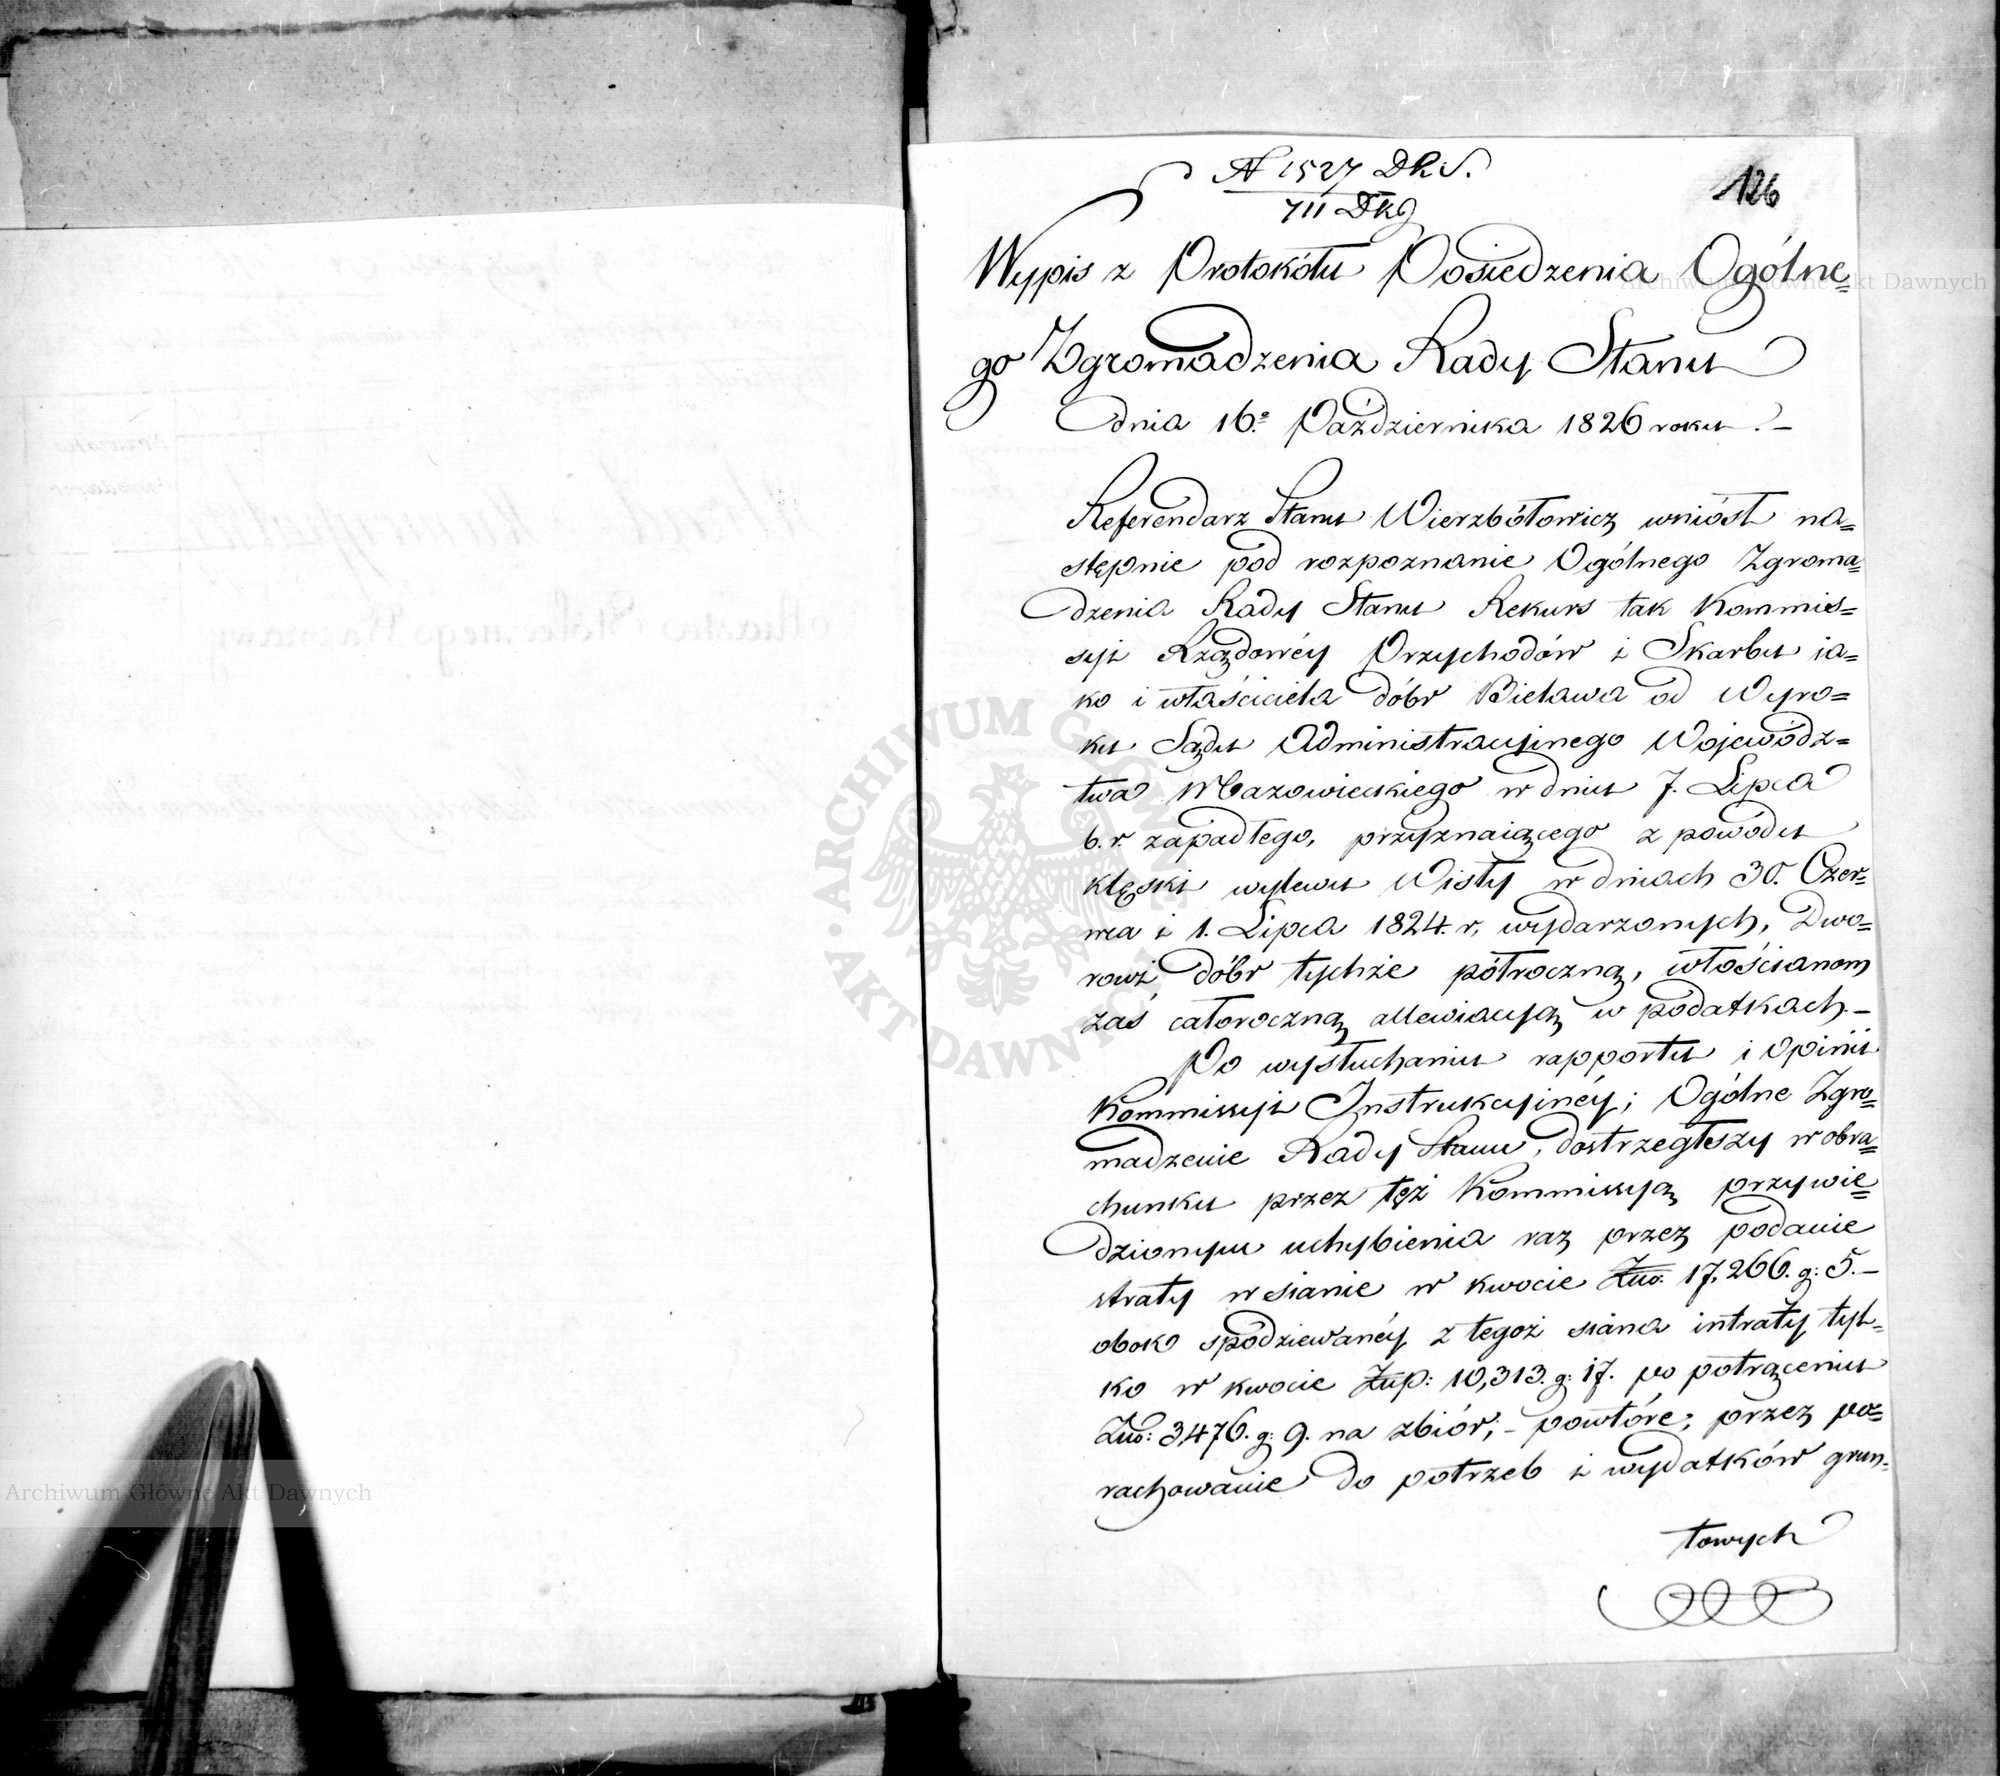 N 1527 DRS.
711 Dkg
126
Wypis z Protokółu Posiedzenia Ogólne=
go Zgromadzenia Rady Stanu
dnia 16.º Października 1826 roku. –
Referendarz Stanu Wierzbółowicz wniósł na=
stępnie pod rozpoznanie Ogólnego Zgroma=
dzenia Rady Stanu Rekurs tak Kommis=
syi Rządowéy Przychodów i Skarbu ia=
ko i właściciela dóbr Bielawa od Wyro=
ku Sądu Administracyinego Wojewódz=
twa Mazowieckiego w dniu 7. Lipca
b. r. zapadłego, przyznaiącego z powodu
klęski wylewu Wisły w dniach 30. Czer=
wca i 1. Lipca 1824. r. wydarzonych, Dwo=
rowi dóbr tychże półroczną, włościanom
zaś całoroczną allewiacyą w podatkach. –
Po wysłuchaniu rapportu i Opinii
Kommissyi Instrukcyinéy; Ogólne Zgro=
madzenie Rady Stanu, dostrzegłszy w obra=
chunku przez też Kommissyą przywie=
dzionym uchybienia raz przez podanie
straty w sianie w kwocie Złło. 17,266. g: 5. –
obok spodziewanéy z tegoż siana intraty tyl=
ko w kwocie Złlp: 10,313. g: 17. po potrąceniu
Złło: 3,476. g: 9. na zbiór; – powtóre; przez po=
rachowanie do potrzeb i wydatków grun=
towych
Archiwum Główne Akt Dawnych
ARCHIWUM GŁÓWNE · AKT DAWNYCH ·
Archiwum Główne Akt Dawnych